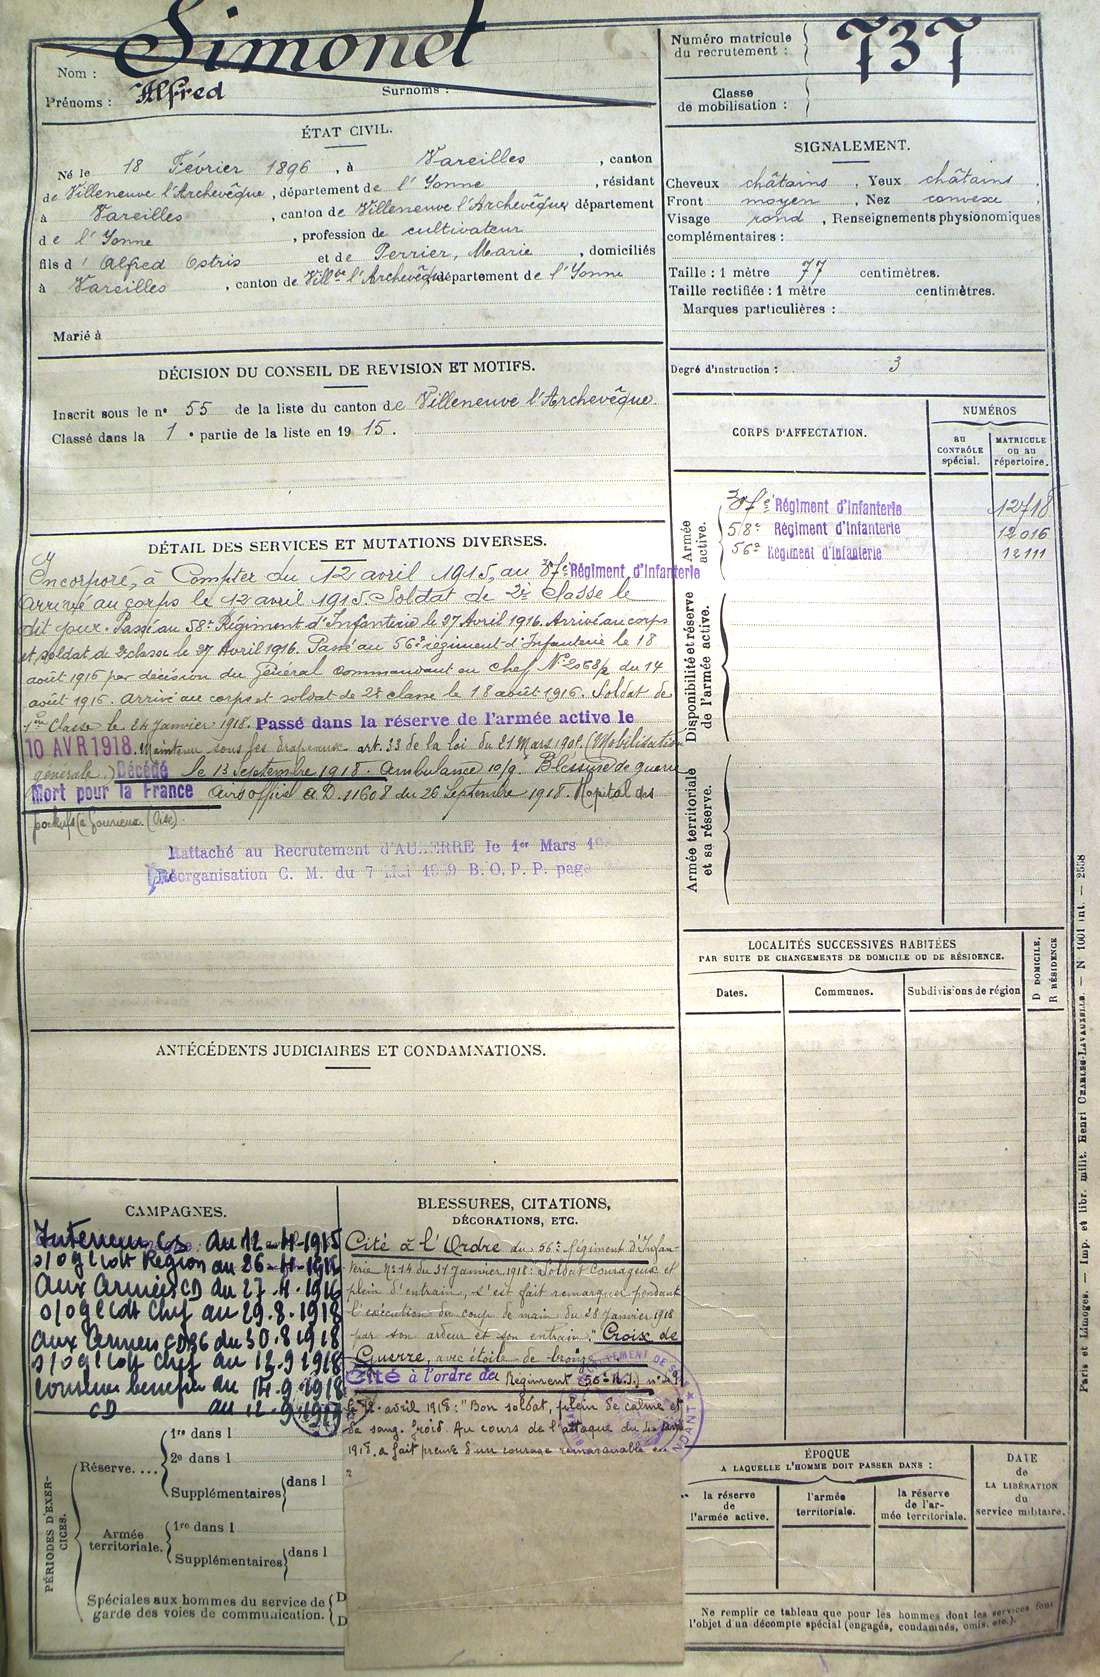 Nom : Simonet
Prénoms : Alfred Surnoms :
Numéro matricule du recrutement : 737
Classe de mobilisation :
ÉTAT CIVIL.
Né le 18 Février 1896, à Vareilles, canton
de Villeneuve l'Archevêque, département de l'Yonne, résidant
à Vareilles, canton de Villeneuve l'Archevêque, département
de l'Yonne, profession de cultivateur
fils d' Alfred Ostris et de Perrier, Marie, domiciliés
à Vareilles, canton de Vill.ve l'Archevêque département de l'Yonne
Marié à
SIGNALEMENT.
Cheveux châtains, Yeux châtains,
Front moyen, Nez convexe,
Visage rond, Renseignements physionomiques
complémentaires :
Taille : 1 mètre 77 centimètres.
Taille rectifiée : 1 mètre centimètres.
Marques particulières :
Degré d'instruction : 3
DÉCISION DU CONSEIL DE REVISION ET MOTIFS.
Inscrit sous le n° 55 de la liste du canton de Villeneuve l'Archevêque.
Classé dans la 1e partie de la liste en 1915.
CORPS D'AFFECTATION.
NUMÉROS
au CONTRÔLE spécial.
MATRICULE ou au répertoire.
Armée active.
Régiment d'Infanterie 12718
58e Régiment d'Infanterie 12016
56e Régiment d'Infanterie 12111
Disponibilité et réserve de l'armée active.
Armée territoriale et sa réserve.
DÉTAIL DES SERVICES ET MUTATIONS DIVERSES.
Incorporé, à Compter du 12 avril 1915, au Régiment d'Infanterie
Arrivé au corps le 12 avril 1915. Soldat de 2e Classe le
dit jour. Passé au 58e Régiment d'Infanterie le 27 Avril 1916. Arrivé au corps
et soldat de 2e classe le 27 Avril 1916. Passé au 56e régiment d'Infanterie le 18
août 1916 par décision du Général Commandant en chef N° 2068/2 du 14
août 1916. Arrivé au corps et soldat de 2e classe le 18 août 1916. Soldat de
1ère Classe le 24 Janvier 1918. Passé dans la réserve de l'armée active le
10 AVR 1918. Maintenu sous les drapeaux art. 33 de la loi du 21 Mars 1905. (Mobilisation
générale.) Décédé le 13 Septembre 1918. Ambulance 10/9. Blessure de guerre
Mort pour la France Avis officiel A.D. 11608 du 26 Septembre 1918. Hopital des
(Oise).
Rattaché au Recrutement d'AUXERRE le 1er Mars
Réorganisation C. M. du 7 B. O. P. P. page
LOCALITÉS SUCCESSIVES HABITÉES
PAR SUITE DE CHANGEMENTS DE DOMICILE OU DE RÉSIDENCE.
Dates. Communes. Subdivisions de région
D DOMICILE.
R RÉSIDENCE
ANTÉCÉDENTS JUDICIAIRES ET CONDAMNATIONS.
CAMPAGNES.
Intérieur CS du 12-4-1915
Région au 26-4-1916
Aux Armées CD du 27-4-1916
chef au 29.8.1918
aux Armées du 30.8.1918
chef au 12.9.1918
au 14.9.1918
CD au 12.9.1919
BLESSURES, CITATIONS,
DÉCORATIONS, ETC.
Cité à l'Ordre du 56e Régiment d'Infan-
terie N° 14 du 31 Janvier 1918: "Soldat courageux et
plein d'entrain, s'est fait remarquer pendant
l'exécution du coup de main du 28 Janvier 1918
par son ardeur et son entrain." Croix de
Guerre, avec étoile de bronze.
Cité à l'ordre du Régiment (56e R.I.)
avril 1918: "Bon soldat, plein de calme et
de sang froid. Au cours de l'attaque du
1918, a fait preuve d'un courage remarquable en
PÉRIODES D'EXERCICES.
Réserve....
1re dans l
2e dans l
Supplémentaires dans l
Armée territoriale.
1re dans l
Supplémentaires dans l
Spéciales aux hommes du service de
garde des voies de communication.
D
D
ÉPOQUE
A LAQUELLE L'HOMME DOIT PASSER DANS :
la réserve de l'armée active.
l'armée territoriale.
la réserve de l'armée territoriale.
DATE de LA LIBÉRATION du service militaire.
Ne remplir ce tableau que pour les hommes dont les services font
l'objet d'un décompte spécial (engagés, condamnés, omis, etc.).
Paris et Limoges. — Imp. et libr. milit. Henri CHARLES-LAVAUZELLE. — N° 1001 int. — 2558